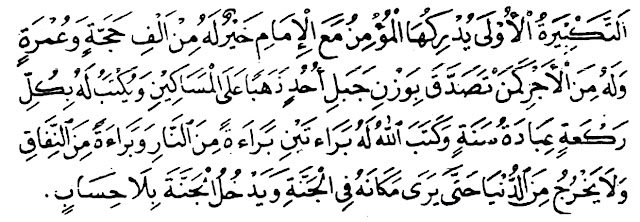 اَلتَّكْبِيرَةُ الْأُولَى يُدْرِكُهَا الْمُؤْمِنُ مَعَ الْإِمَامِ خَيْرٌ لَهُ مِنْ اَلْفِ حَجَّةٍ وَعُمْرَةٍ
وَلَهُ مِنَ الْأَجْرِ كَمَنْ تَصَدَّقَ بِوَزْنِ جَبَلِ أُحُدٍ ذَهَبًا عَلَى الْمَسَاكِيْنِ وَيُكْتَبُ لَهُ بِكُلِّ
رَكْعَةٍ عِبَادَةُ سَنَةٍ وَكَتَبَ اللهُ لَهُ بَرَاءَتَيْنِ بَرَاءَةً مِنَ النَّارِ وَبَرَاءَةً مِنَ النِّفَاقِ
وَلَا يَخْرُجُ مِنَ الدُّنْيَا حَتَّى يَرَى مَكَانَهُ فِى الْجَنَّةِ وَيَدْخُلُ الْجَنَّةَ بِلَا حِسَابٍ .